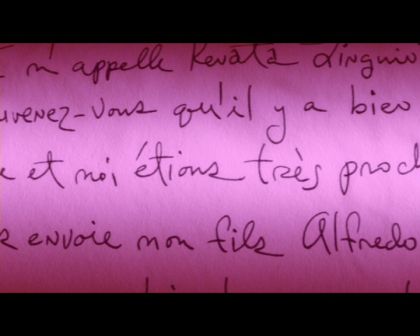 m'appelle Renata Linguin
uvenez-vous qu'il y a bien
e et moi étions très proc
envoie mon fils Alfredo